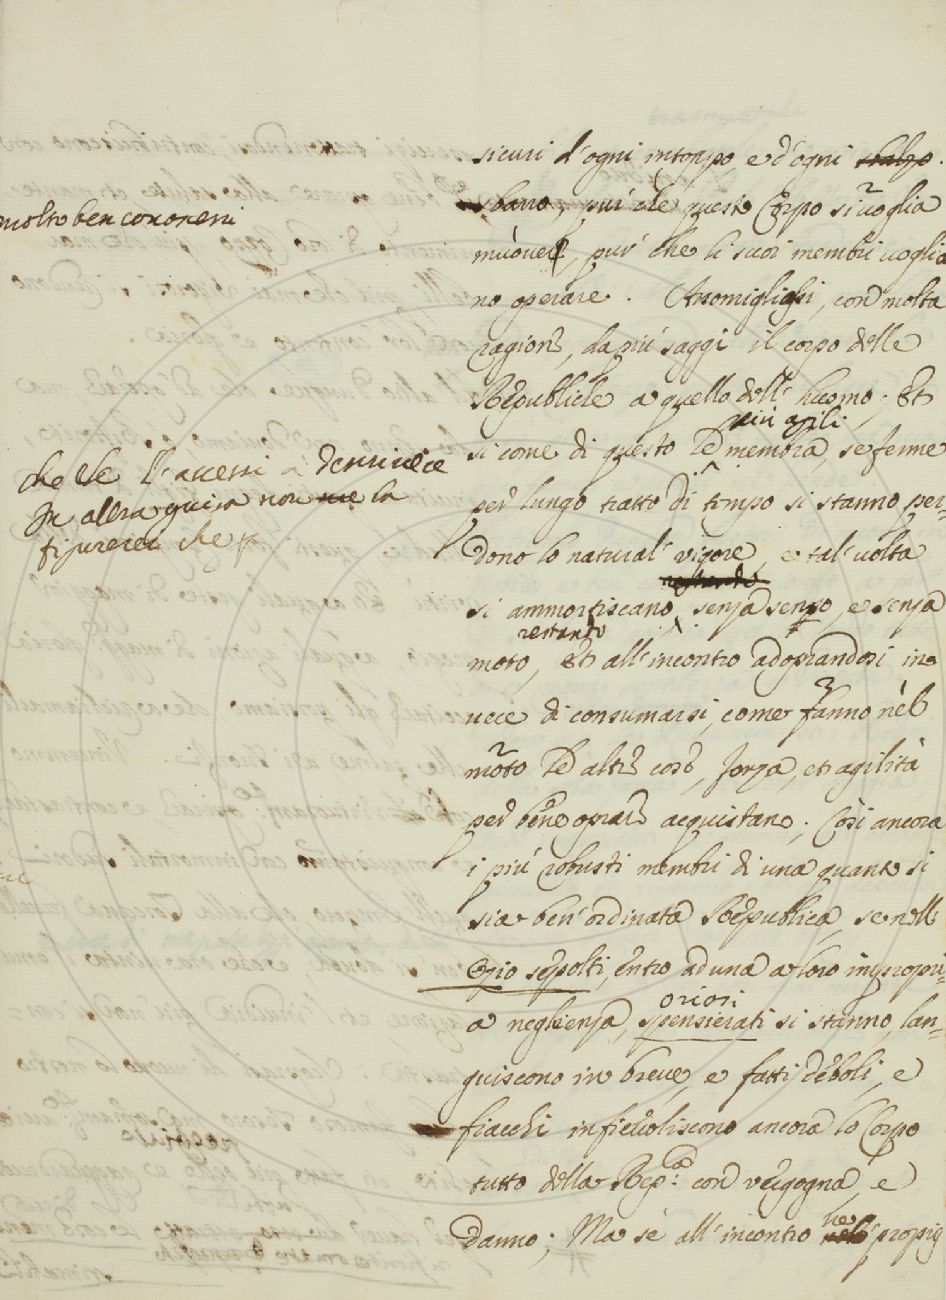 sicuri d'ogni intoppo, e d'ogni
sbarro, più che questo Corpo si voglia
molto ben concoreni
muover, pur' che li suoi membri voglia
no operare. Assomigliasi, con molta
ragione, da più saggi il corpo delle
Republiche a quello dell' huomo; Et
più agili
si come di questo le membra, se ferme
che se l'accessi a descrivere
in altra guisa non la
figurerei che
per lungo tratto di tempo si stanno per-
dono lo natural' vigore, e tal' volta
si ammortiscano, senza senso, e senza
restando
moto, et all'incontro adoprandosi in
vece di consumarsi, come fanno nel
moto le altre cose, forza, et agilità
per bene oprare acquistano; Così ancora
i più robusti membri di una quanto si
sia ben' ordinata Republica, se nell
Ozio sepolti, entro ad una a loro impropri-
oziosi
a neghienza, spensierati si stanno, lan-
guiscono in breve, e fatti deboli, e
fiacchi infievoliscono ancora lo Corpo
tutto della Rep:ca con vergogna, e
ne
danno; Ma se all' incontro propij